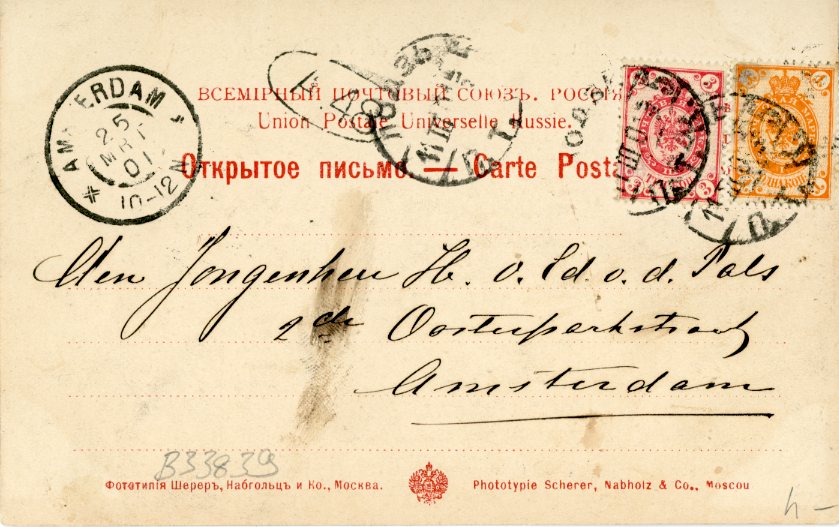 ВСЕМІРНЫЙ ПОЧТОВЫЙ СОЮЗЪ. РОССІЯ
Union Postale Universelle Russie.
Открытое письмо — Carte Posta
AMSTERDAM
25
MRT
01
10-12 N
Den Jongenheer H. v. Ed. v. d. Pals
2de Oosterparkstraat
Amsterdam
B33839
Фототипія Шереръ, Набгольцъ и Ко., Москва.
Phototypie Scherer, Nabholz & Co., Moscou